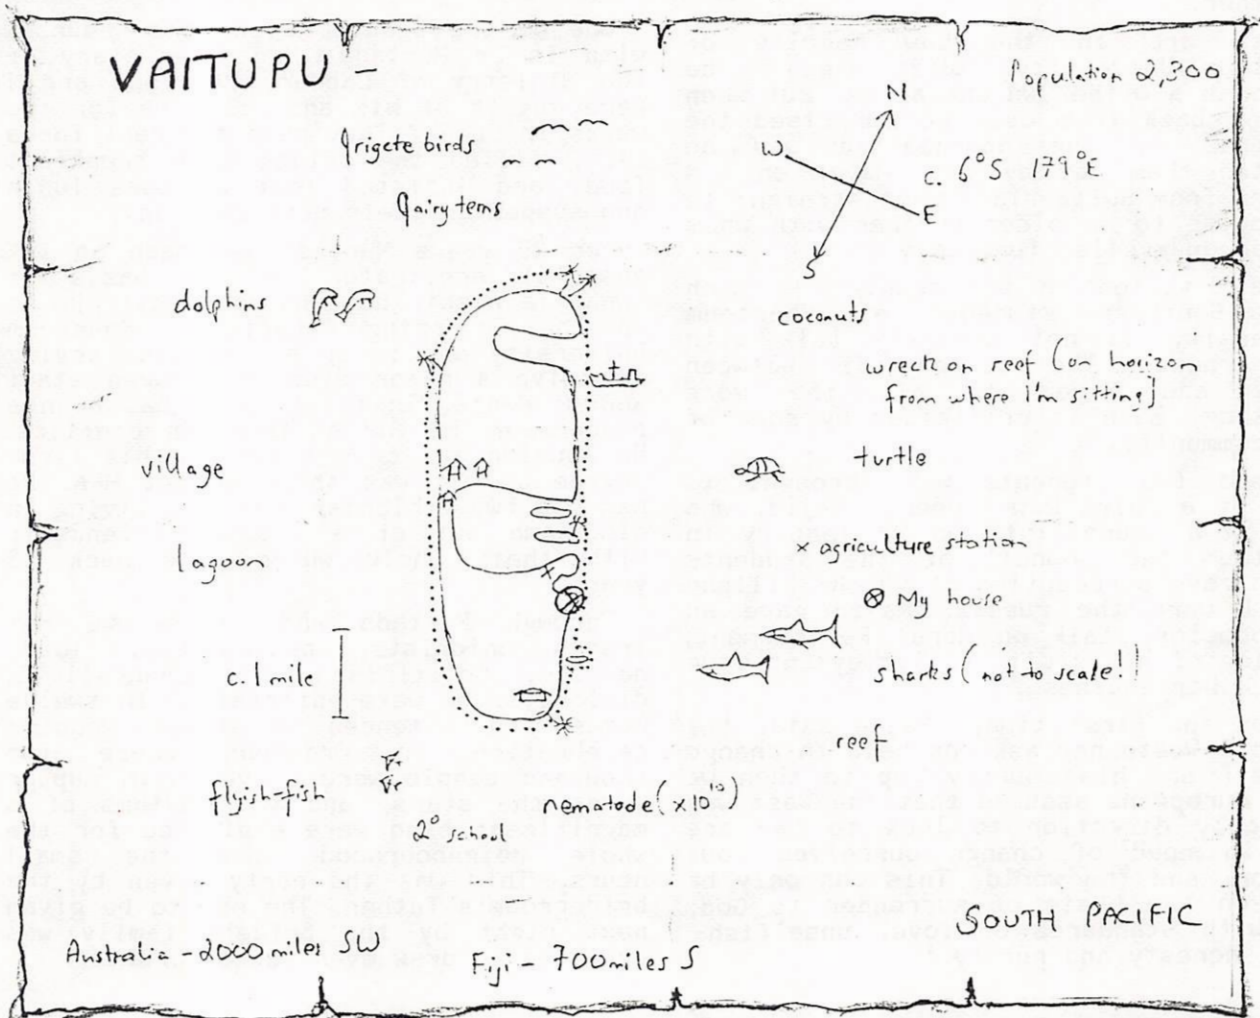 VAITUPU –
Population 2,300
N
frigate birds
W
c. 6°S 179°E
fairy terns
E
S
dolphins
coconuts
wreck on reef (on horizon
from where I'm sitting)
village
turtle
lagoon
x agriculture station
⊗ My house
c. 1 mile
sharks (not to scale!)
reef
flyish-fish
nematode (x10¹⁰)
2° school
SOUTH PACIFIC
Australia – 2000 miles SW
Fiji – 700 miles S